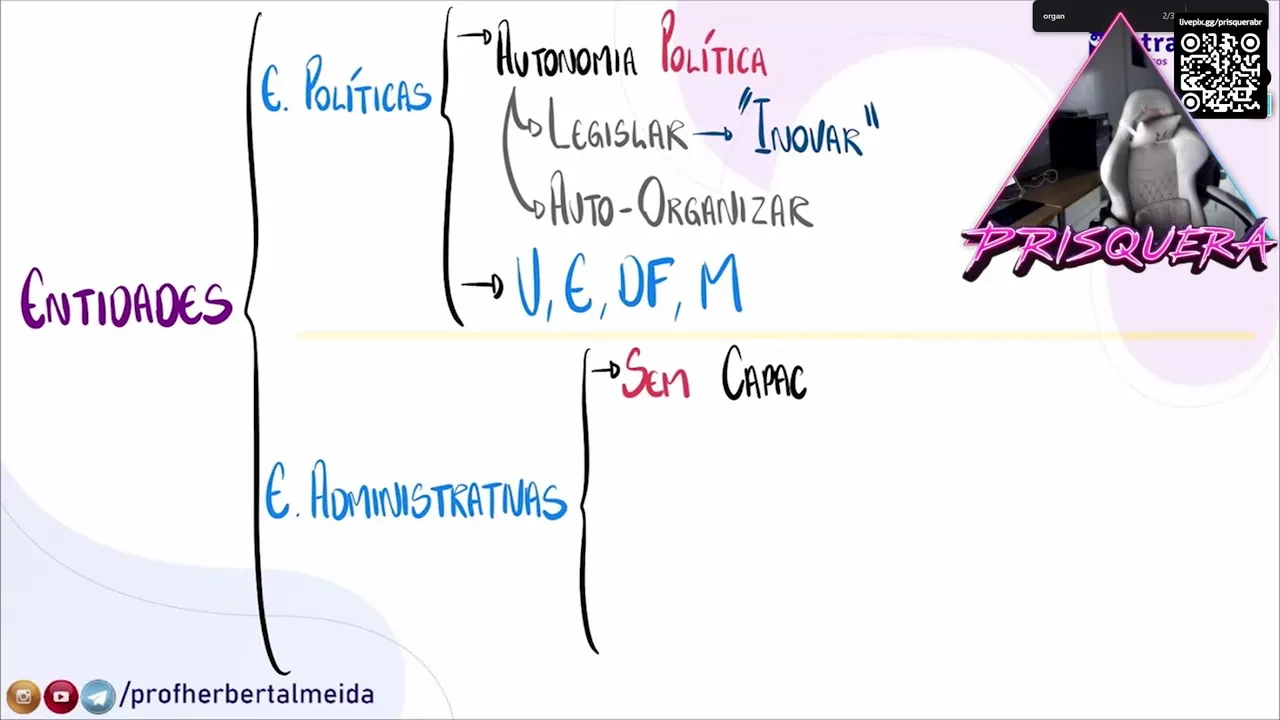 organ 2/3
livepix.gg/prisquerabr
PRISQUERA
ENTIDADES
E. POLÍTICAS
AUTONOMIA POLÍTICA
LEGISLAR → "INOVAR"
AUTO-ORGANIZAR
U, E, DF, M
E. ADMINISTRATIVAS
SEM CAPAC
/profherbertalmeida